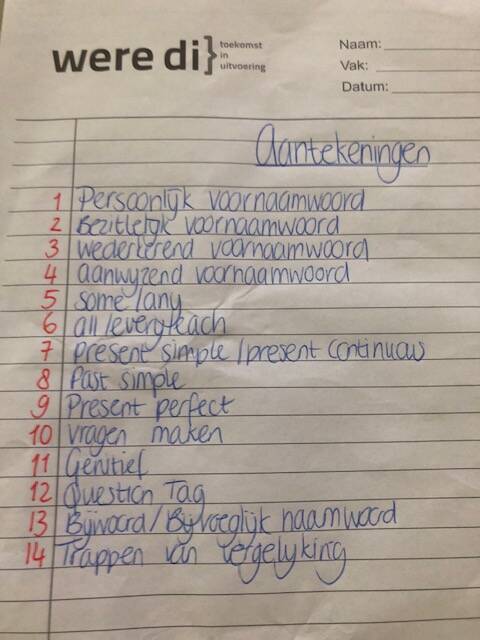 were di} toekomst in uitvoering
Naam:
Vak:
Datum:
Aantekeningen
1 Persoonlijk voornaamwoord
2 Bezittelijk voornaamwoord
3 wederkerend voornaamwoord
4 aanwyzend voornaamwoord
5 some/any
6 all/every/each
7 present simple/present continuous
8 Past simple
9 Present perfect
10 vragen maken
11 Genitief
12 Question Tag
13 Bijwoord/Bijvoeglijk naamwoord
14 Trappen van vergelyking